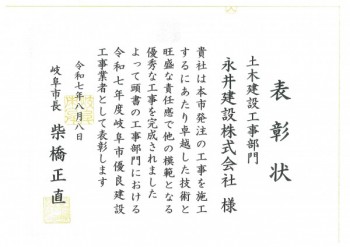 表彰状
土木建設工事部門
永井建設株式会社 様
貴社は本市発注の工事を施工
するにあたり卓越した技術と
旺盛な責任感で他の模範となる
優秀な工事を完成されました
よって頭書の工事部門における
令和七年度岐阜市優良建設
工事業者として表彰します
令和七年八月八日
岐阜市長 柴橋正直